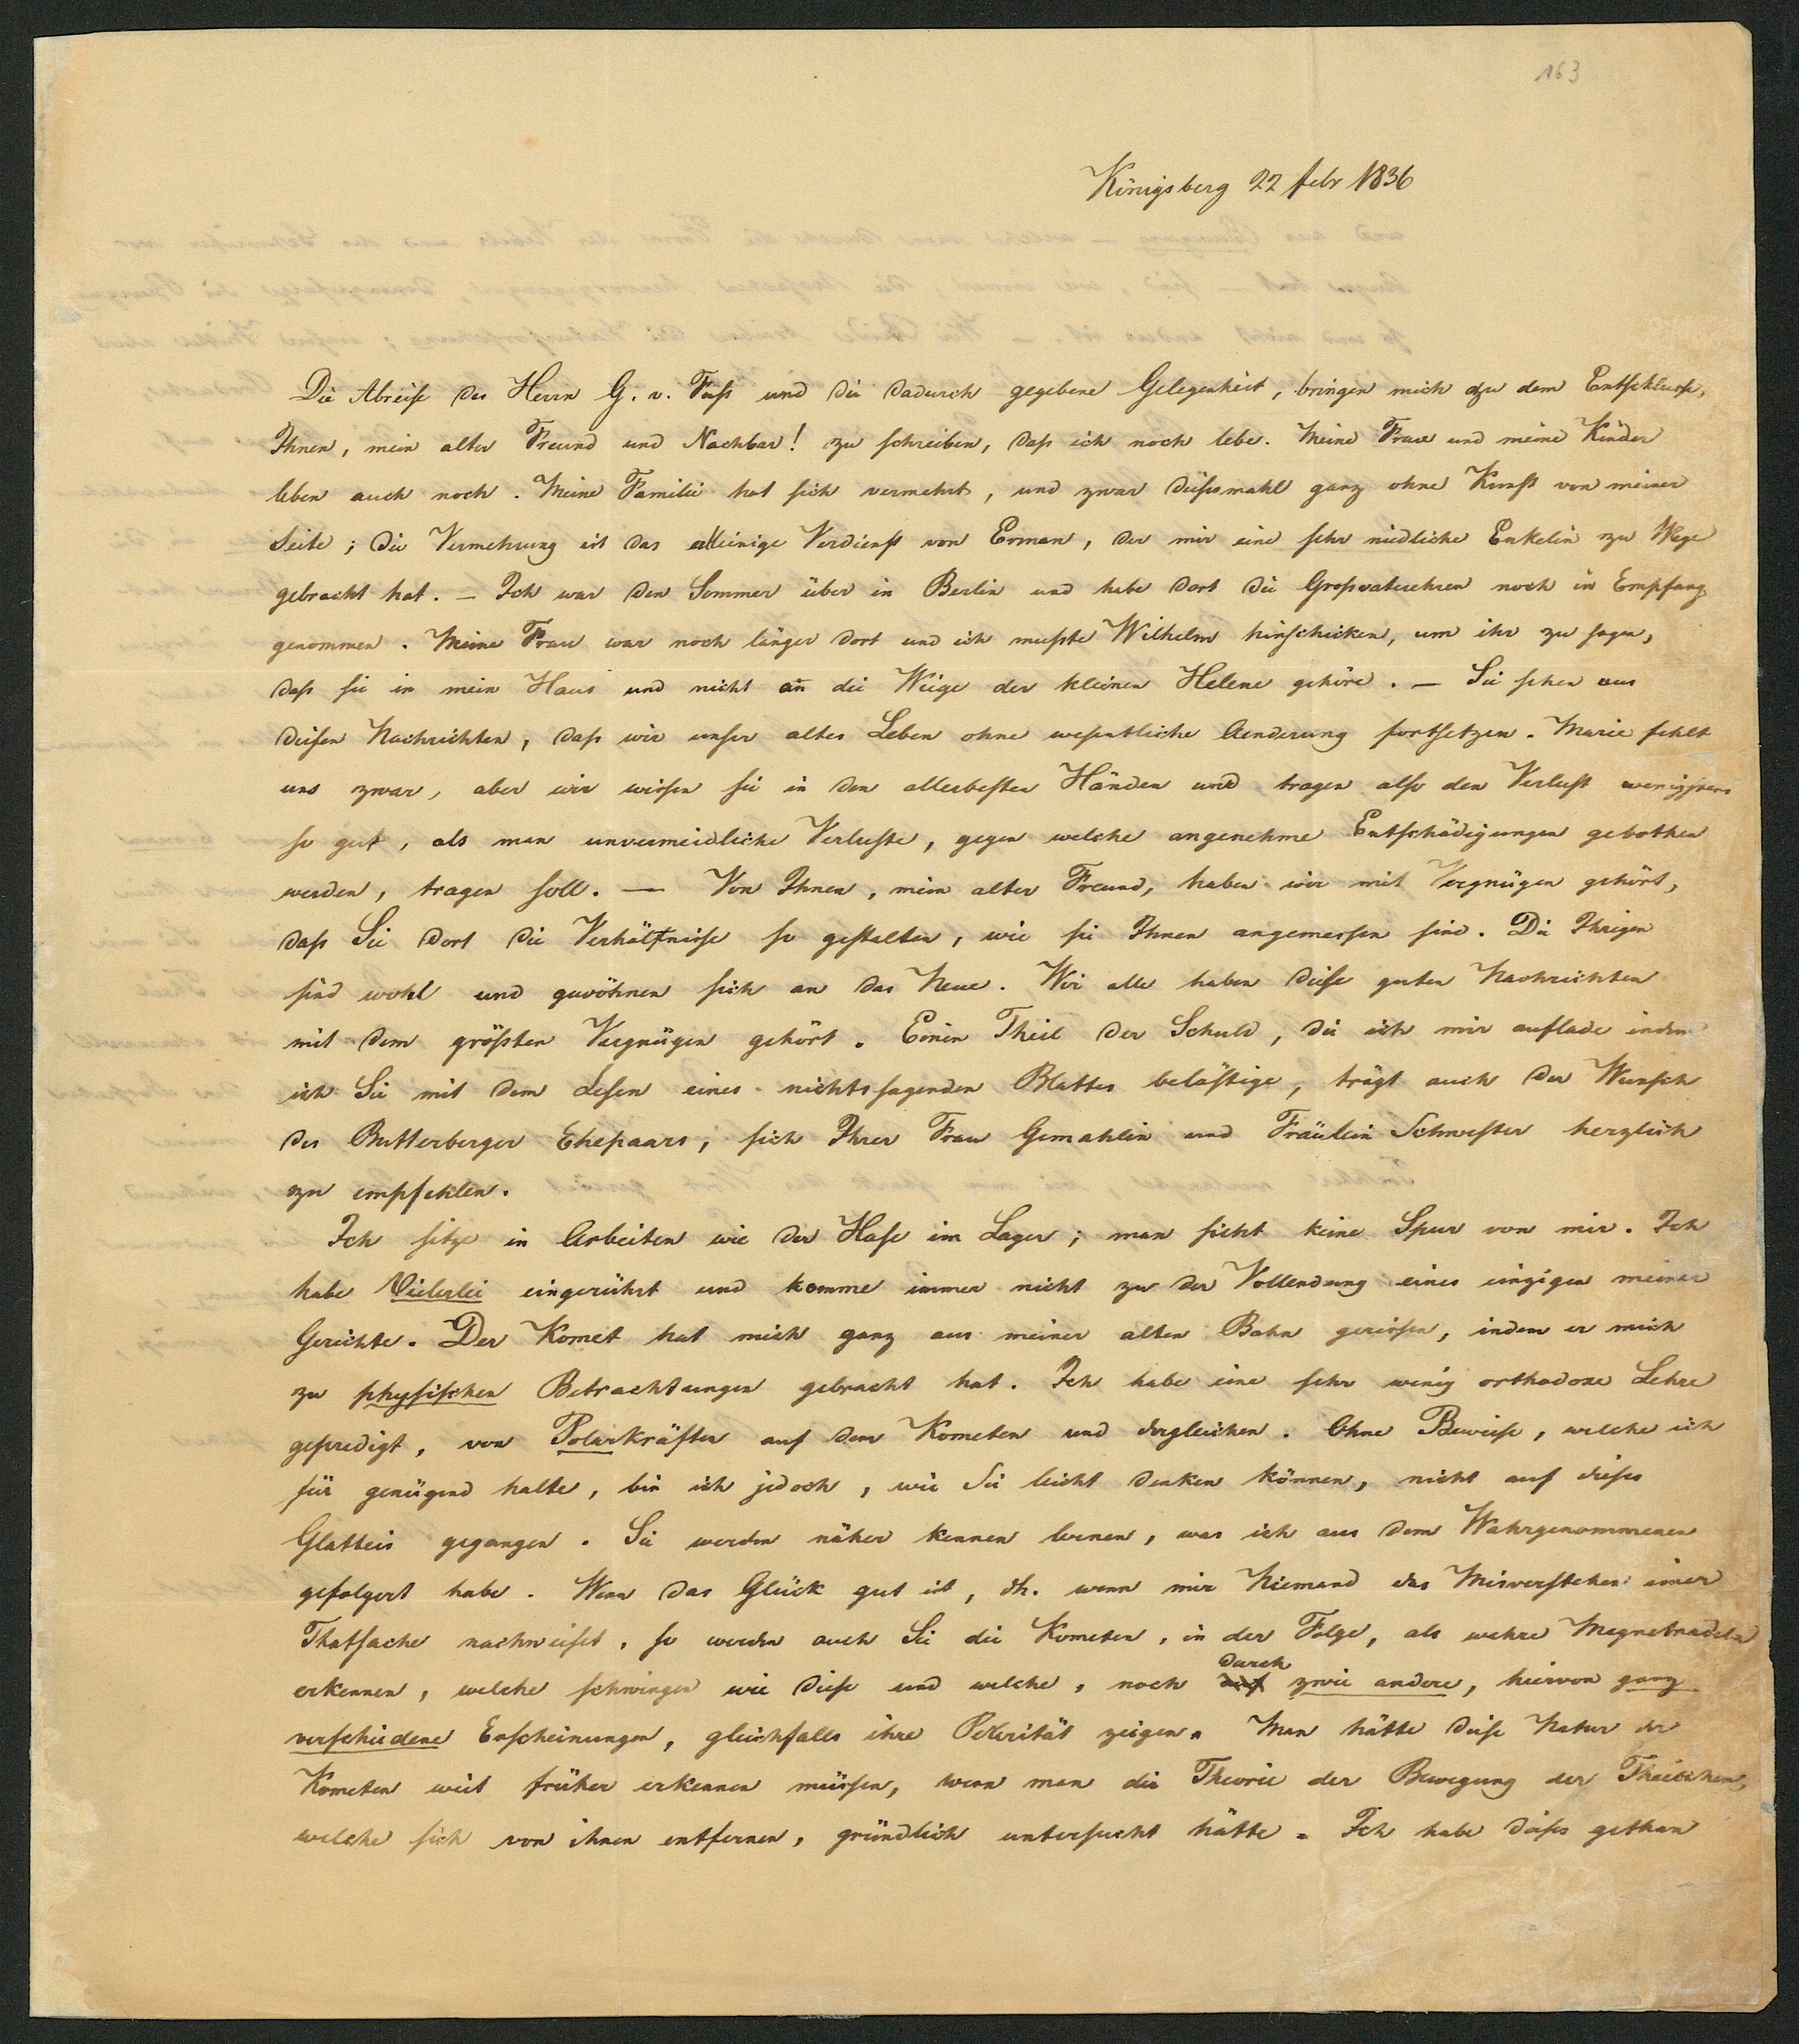 163
Königsberg 22 febr 1836
Die Abreise des Herrn G. v. Fuss und die dadurch gegebene Gelegenheit, bringen mich zu dem Entschlusse,
Ihnen, mein alter Freund und Nachbar! zu schreiben, dass ich noch lebe. Meine Frau und meine Kinder
leben auch noch. Meine Familie hat sich vermehrt, und zwar diessmahl ganz ohne Kunst von meiner
Seite; die Vermehrung ist das alleinige Verdienst von Erman, der mir eine sehr niedliche Enkelin zu Wege
gebracht hat. – Ich war den Sommer über in Berlin und habe dort die Grossvaterehren noch in Empfang
genommen. Meine Frau war noch länger dort und ich musste Wilhelm hinschicken, um ihr zu sagen,
dass sie in mein Haus und nicht an die Wiege der kleinen Helene gehöre. – Sie sehen aus
diesen Nachrichten, dass wir unser altes Leben ohne wesentliche Aenderung fortsetzen. Marie fehlt
uns zwar, aber wir wissen sie in den allerbesten Händen und tragen also den Verlust wenigstens
so gut, als man unvermeidliche Verluste, gegen welche angenehme Entschädigungen gebothen
werden, tragen soll. — Von Ihnen, mein alter Freund, haben wir mit Vergnügen gehört,
dass Sie dort die Verhältnisse so gestalten, wie sie Ihnen angemessen sind. Die Ihrigen
sind wohl und gewöhnen sich an das Neue. Wir alle haben diese guten Nachrichten
mit dem grössten Vergnügen gehört. Einen Theil der Schuld, die ich mir auflade indem
ich Sie mit dem Lesen eines nichtssagenden Blattes belästige, trägt auch der Wunsch
des Butterberger Ehepaars, sich Ihrer Frau Gemahlin und Fräulein Schwester herzlich
zu empfehlen.
Ich sitze in Arbeiten wie der Hase im Lager; man sieht keine Spur von mir. Ich
habe Vielerlei eingerührt und komme immer nicht zu der Vollendung eines einzigen meiner
Gerichte. Der Komet hat mich ganz aus meiner alten Bahn gerissen, indem er mich
zu physischen Betrachtungen gebracht hat. Ich habe eine sehr wenig orthodoxe Lehre
gepredigt, von Polarkräften auf dem Kometen und dergleichen. Ohne Beweise, welche ich
für genügend halte, bin ich jedoch, wie Sie leicht denken können, nicht auf dieses
Glatteis gegangen. Sie werden näher kennen lernen, was ich aus dem Wahrgenommenen
gefolgert habe. Wenn das Glück gut ist, dh. wenn mir Niemand das Misverstehen einer
Thatsache nachweiset, so werden auch Sie die Kometen, in der Folge, als wahre Magnetnadeln
erkennen, welche schwingen wie diese und welche, noch durch zwei andere, hiervon ganz
verschiedene Erscheinungen, gleichfalls ihre Polarität zeigen. Man hätte diese Natur der
Kometen weit früher erkennen müssen, wenn man die Theorie der Bewegung der Theilchen,
welche sich von ihnen entfernen, gründlich untersucht hätte. Ich habe dieses gethan